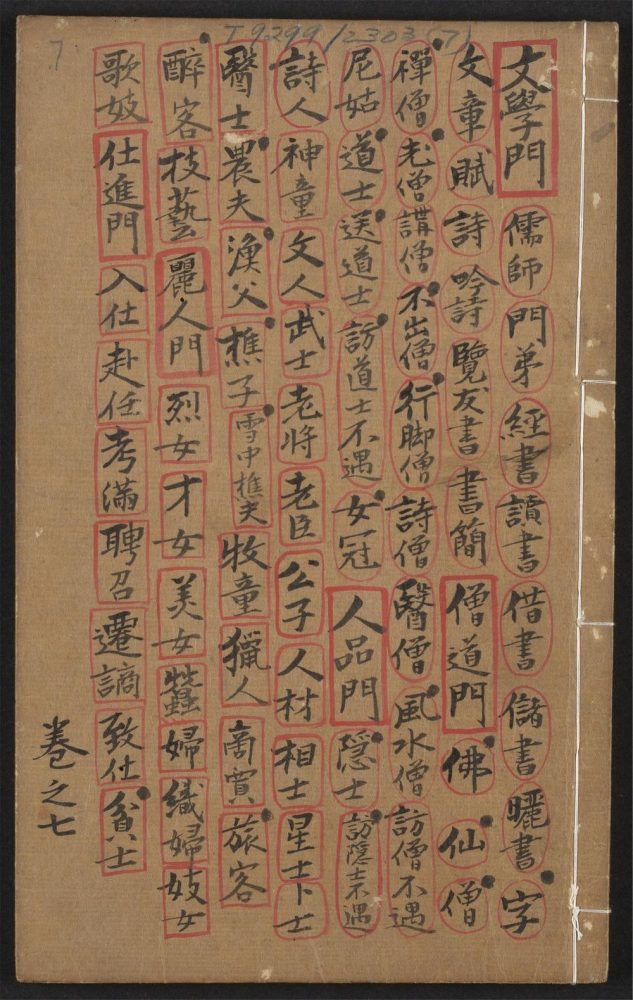 T9299/2303(7)
7
文學門 儒師 門弟 經書 讀書 借書 儲書 曬書 字
文章 賦 詩 吟詩 覽友書 書簡 僧道門 佛 仙 僧
禪僧 老僧 講僧 不出僧 行脚僧 詩僧 醫僧 風水僧 訪僧不遇
尼姑 道士 送道士 訪道士不遇 女冠 人品門 隱士 訪隱士不遇
詩人 神童 文人 武士 老將 老臣 公子 人材 相士 星士 卜士
醫士 農夫 漁父 樵子 雪中樵夫 牧童 獵人 商賈 旅客
醉客 技藝 麗人門 烈女 才女 美女 蠶婦 織婦 妓女
歌妓 仕進門 入仕 赴任 考滿 聘召 遷謫 致仕 貧士
卷之七